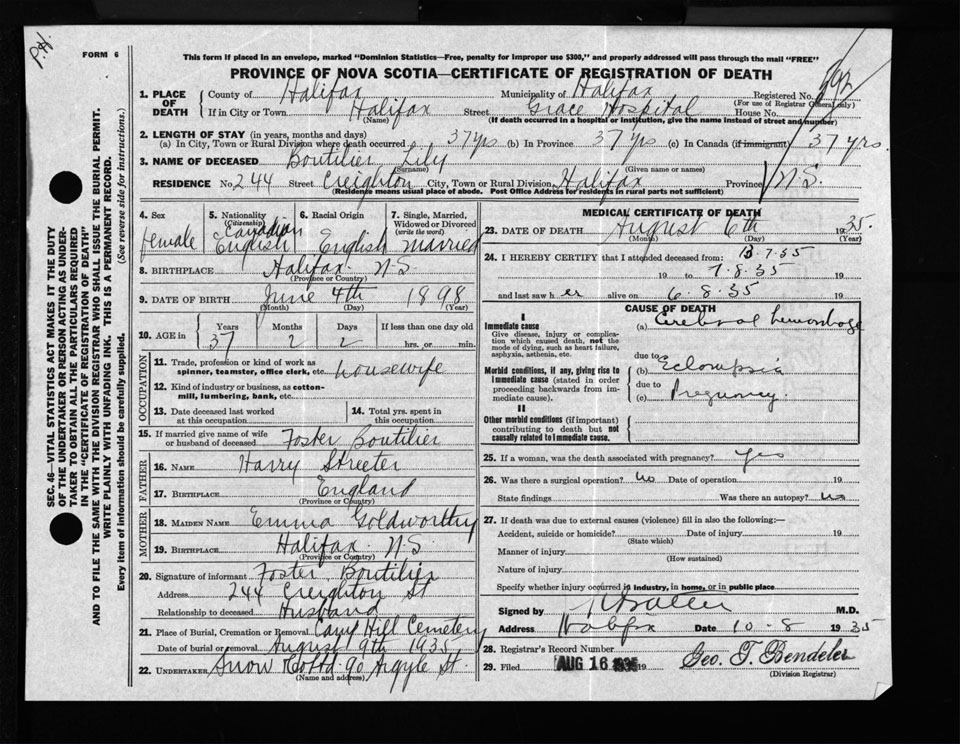 P.H.
FORM 6
This form if placed in an envelope, marked "Dominion Statistics—Free, penalty for improper use $300," and properly addressed will pass through the mail "FREE"
PROVINCE OF NOVA SCOTIA—CERTIFICATE OF REGISTRATION OF DEATH
1. PLACE OF DEATH County of Halifax Municipality of Halifax Registered No. (For use of Registrar General only)
If in City or Town Halifax (Name) Street Grace Hospital House No.
(If death occurred in a hospital or institution, give the name instead of street and number)
2. LENGTH OF STAY (in years, months and days)
(a) In City, Town or Rural Division where death occurred 37 yrs (b) In Province 37 yrs (c) In Canada (if immigrant) 37 yrs.
3. NAME OF DECEASED Boutilier Lily
(Surname) (Given name or names)
RESIDENCE No. 244 Street Creighton City, Town or Rural Division Halifax Province N.S.
(Residence means usual place of abode. Post Office Address for residents in rural parts not sufficient)
4. Sex female
5. Nationality (Citizenship) Canadian English
6. Racial Origin English
7. Single, Married, Widowed or Divorced (write the word) married
8. BIRTHPLACE Halifax N.S.
(Province or Country)
9. DATE OF BIRTH June 4th 1898
(Month) (Day) (Year)
10. AGE in Years 37 Months 2 Days 2 If less than one day old hrs. or min.
OCCUPATION
11. Trade, profession or kind of work as spinner, teamster, office clerk, etc. housewife
12. Kind of industry or business, as cotton-mill, lumbering, bank, etc.
13. Date deceased last worked at this occupation
14. Total yrs. spent in this occupation
15. If married give name of wife or husband of deceased Foster Boutilier
FATHER
16. NAME Harry Streeter
17. BIRTHPLACE England
(Province or Country)
MOTHER
18. MAIDEN NAME Emma Goldworthy
19. BIRTHPLACE Halifax N.S.
(Province or Country)
20. Signature of informant Foster Boutilier
Address 244 Creighton St
Relationship to deceased Husband
21. Place of Burial, Cremation or Removal Camp Hill Cemetery
Date of burial or removal August 9th 1935
22. UNDERTAKER Snow Co Ltd 90 Argyle St.
(Name and address)
MEDICAL CERTIFICATE OF DEATH
23. DATE OF DEATH August 6th 1935.
(Month) (Day) (Year)
24. I HEREBY CERTIFY that I attended deceased from: 13.7.35
19 to 7.8.35 19
and last saw her alive on 6.8.35 19
CAUSE OF DEATH
I
Immediate cause
Give disease, injury or complication which caused death, not the mode of dying, such as heart failure, asphyxia, asthenia, etc.
(a) Cerebral hemorrhage
due to
Morbid conditions, if any, giving rise to immediate cause (stated in order proceeding backwards from immediate cause).
(b) Eclampsia
due to
(c) Pregnancy.
II
Other morbid conditions (if important) contributing to death but not causally related to immediate cause.
25. If a woman, was the death associated with pregnancy? yes
26. Was there a surgical operation? no Date of operation 19
State findings Was there an autopsy? no
27. If death was due to external causes (violence) fill in also the following:—
Accident, suicide or homicide? Date of injury 19
(State which)
Manner of injury
(How sustained)
Nature of injury
Specify whether injury occurred in industry, in home, or in public place
Signed by M.D.
Address Halifax Date 10-8 1935
28. Registrar's Record Number
29. Filed AUG 16 1935 19 Geo. T. Bendeler
(Division Registrar)
SEC. 46—VITAL STATISTICS ACT MAKES IT THE DUTY
OF THE UNDERTAKER OR PERSON ACTING AS UNDER-
TAKER TO OBTAIN ALL THE PARTICULARS REQUIRED
IN THE "CERTIFICATE OF REGISTRATION OF DEATH"
AND TO FILE THE SAME WITH THE DIVISION REGISTRAR WHO SHALL ISSUE THE BURIAL PERMIT.
WRITE PLAINLY WITH UNFADING INK. THIS IS A PERMANENT RECORD.
Every item of information should be carefully supplied. (See reverse side for instructions.)